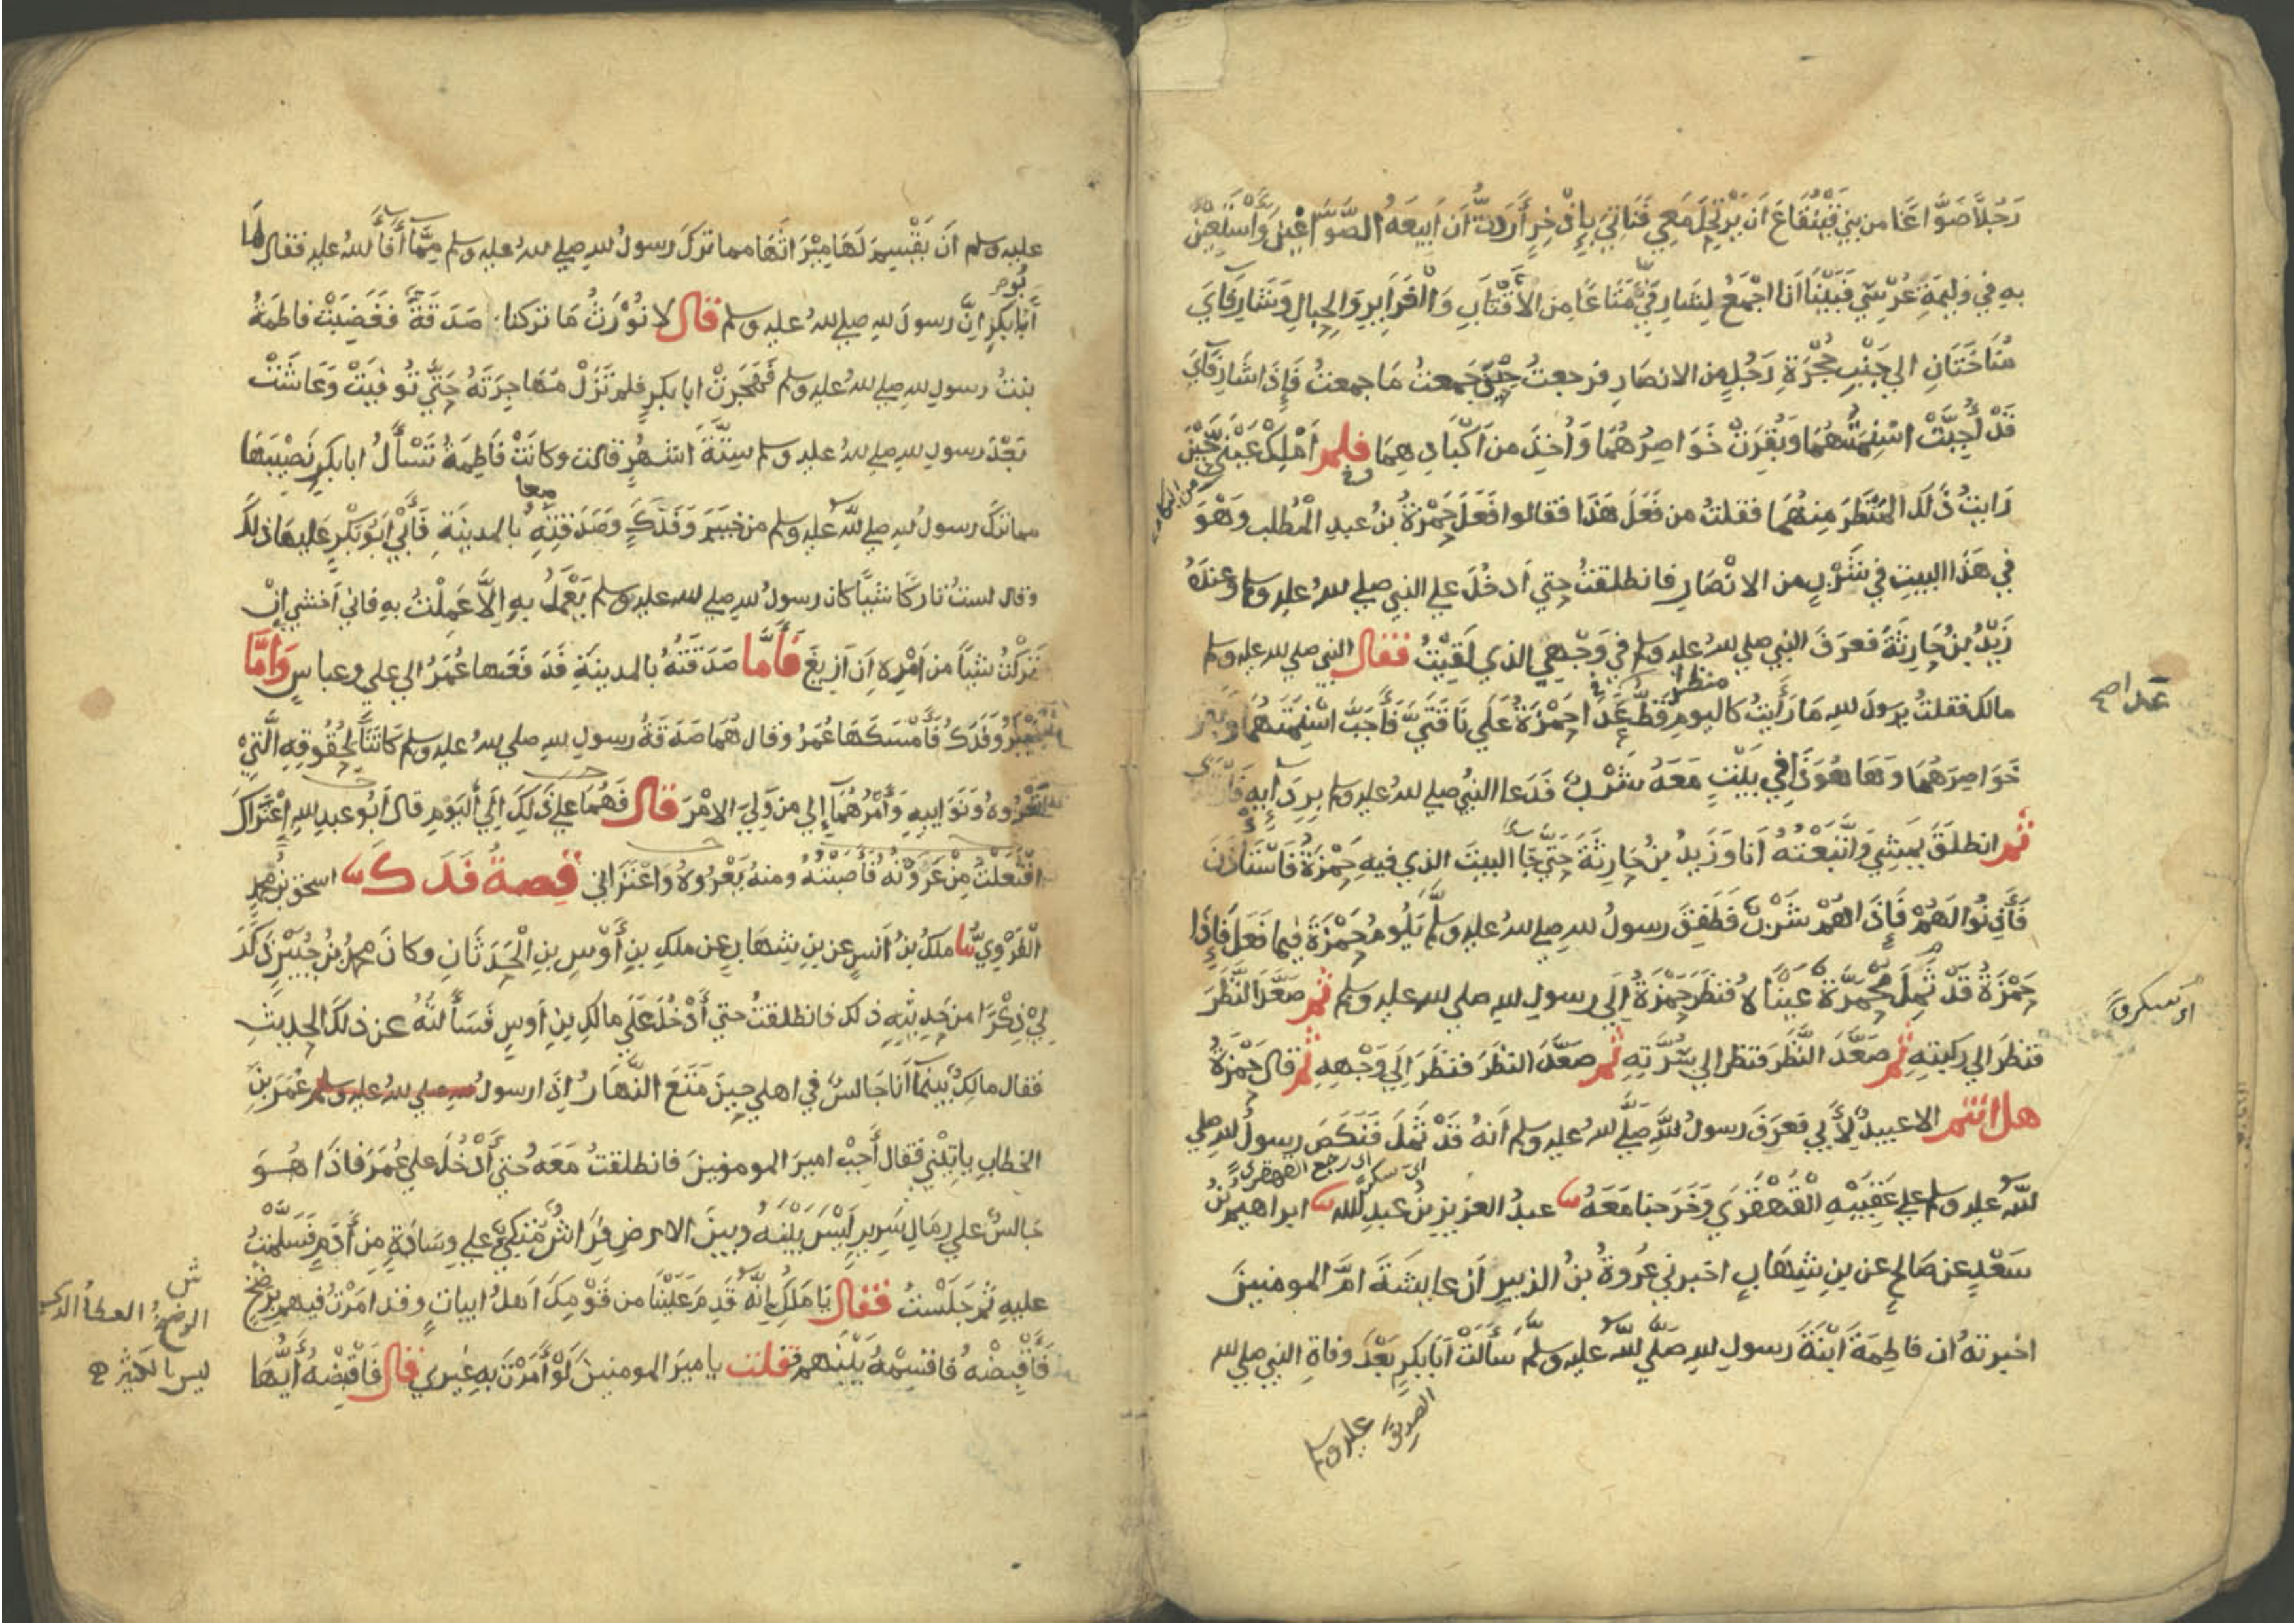 رَجُلًا صَوَّاغًا من بني قَيْنُقَاعَ اَن يَرْتَحِلَ مَعِي فَنَأتِيَ بِإِذْخِرٍ أَرَدتُّ اَن اَبِيعَهُ الصَّوَّاغِينَ وَأَسْتَعِينَ
بِهِ فِي وَلِيمَةِ عُرْسِي فَبَيْنَا اَنا اَجْمَعُ لِشَارِفَيَّ مَتَاعًا مِن الأَقْتَابِ وَالْغَرَايِرِ وَالْحِبَالِ وَشَارِفَايَ
مُنَاخَتَانِ الي جَنْبِ حُجْرَةِ رَجُلٍ من الانصَارِ فرجعتُ حِينَ جَمعتُ مَا جمعتُ فَإِذَا شَارِفَايَ
قَدْ اُجِبَّتْ اسْنِمَتُهُمَا وَبُقِرَتْ خَوَاصِرُهُمَا وَأُخِذَ من اَكْبَادِهِمَا فلم اَمْلِكْ عَيْنَيَّ حِينَ
رَايتُ ذَلكَ المَنْظَرَ مِنهُمَا فقلتُ من فَعَلَ هَذَا فقالوا فَعَلَ حَمْزَةُ بنُ عبدِ المُطلب وَهْوَ
فِي هَذَا البيتِ في شَرْبٍ من الانْصَارِ فانطلقتُ حتي اَدخُلَ علي النبي صلي لله عليه وسلم وعندَهُ
زَيْدُ بنُ حَارِثَةَ فعرَفَ النبي صلي لله عليه وسلم في وَجْهِي الذي لَقِيتُ فقال النبي صلي لله عليه وسلم
مالك فقلتُ يرسولَ للهِ مَا رَأَيتُ كاليومِ قَطُّ عَدَا حَمْزَةُ عَلَي نَاقَتَيَّ فَأَجَبَّ اسْنِمَتَهُمَا وَبَقَرَ
منظرا
عدا صح
خَوَاصِرَهُمَا وَهَا هُوَ ذَا في بَيْتٍ مَعَهُ شَرْبٌ فَدَعا النبيُ صلي لله عليه وسلم بِرِدَآيِهِ فَارْتَدي
ثم انطلَقَ يَمشِي وَاتَّبَعْتُهُ اَنا وَزَيدُ بنُ حَارِثَةَ حَتَّي جَا البيتَ الذي فيهِ حَمْزَةُ فَاسْتَاذَنَ
فَأَذِنُوا لَهُمْ فَإِذَا هُمْ شَرْبٌ فَطَفِقَ رسولُ للهِ صلي لله عليه وسلَّم يَلُومُ حَمْزَةَ فِيمَا فَعَلَ فَإِذَا
حَمْزَةُ قَدْ ثَمِلَ مُحْمَرَّةً عَيْنَاهُ فَنَظَرَ حَمْزَةُ إِلَي رسولِ للهِ صلي لله عليه وسلم ثم صَعَّدَ النَّظَرَ
اي سكر
فنظَرَ الي ركبتِهِ ثم صَعَّدَ النَّظَرَ فنظر الي سُرَّتِهِ ثم صَعَّدَ النظَرَ فنظَرَ اِلَي وَجْهِهِ ثم قال حَمْزَةُ
هل انتم الا عبيدٌ لِأَبِي فعَرَفَ رسولُ للهِ صَلَّي لله عليه وسلم اَنهُ قَدْ ثَمِلَ فَنَكَصَ رسولُ للهِ صلي
اي رجع القهقري
لله عليه وسلم علي عَقِبَيْهِ الْقَهْقَرَي وَخَرَجنا مَعَهُ عبدُ العزيزِ بنُ عبدِ الله ابراهيمُ بنُ
سَعْدٍ عن صَالحٍ عن بنِ شِهَابٍ اخبرني عُروةُ بنُ الزبيرِ ان عايشَةَ امَّ المومنينَ
اخبرتهُ ان فاطِمَةَ ابْنَةَ رَسولِ للهِ صَلَّي لله عليه وسلَّم سَأَلَتْ اَبَا بَكرٍ بَعْدَ وفاةِ النبي صلي لله
الصديق
عليه وسلم
عليه وسلم اَن يَقْسِمَ لَهَا مِيْرَاثَهَا مما تركَ رسولُ للهِ صلي لله عليه وسلم مِمَّا أَفَآءَ للهُ عليه فقال لَها
أَبُو بَكرٍ اِنَّ رسولَ للهِ صلي لله عليه وسلم قال لا نُوْرَثُ مَا تركنا صَدَقَةٌ فَغَضِبَتْ فاطِمَةُ
بنتُ رسولِ للهِ صلي لله عليه وسلم فَهَجَرَتْ ابا بكرٍ فلم تَزَلْ مُهَاجِرَتَهُ حَتَّي تُوُفِيَتْ وَعَاشَتْ
بَعْدَ رسولِ للهِ صلي لله عليه وسلم سِتَّةَ اشهُرٍ قالت وكانَتْ فَاطِمَةُ تَسْأَلُ ابا بكرٍ نَصِيْبَهَا
مما تركَ رسولُ للهِ صلي لله عليه وسلم من خيبَرَ وَفَدَكٍ وَصَدَقَتِهِ بالمدينَةِ فَأَبَي اَبُو بَكْرٍ عَليهَا ذلكَ
معا
وقال لستُ تارِكًا شيًا كان رسولُ للهِ صلي لله عليه وسلم يَعْمَلُ بِهِ اِلاَّ عَمِلْتُ بِهِ فاني اَخشي اِنْ
تَرَكْتُ شيًا من اَمْرِهِ اَن اَزِيغَ فَأَمَّا صَدَقَتُهُ بالمدينةِ فَدَفَعَهَا عُمَرُ الي علي وعباسٍ وَأَمَّا
خَيْبَرُ وَفَدَكُ فَأَمْسَكَهَا عُمَرُ وقال هُمَا صَدَقَةُ رسولِ للهِ صلي لله عليه وسلم كَانَتَا لِحُقُوقِهِ الَّتِي
تَعْرُوهُ وَنَوَايبِهِ وَأَمْرُهُمَا إِلي من وَلِيَ الامْرَ قال فَهُمَا علي ذَلِكَ اِلَي الْيَوْمِ قال اَبُو عبدِ للهِ اعْتَرَاكَ
افْتَعَلْتَ مِنْ عَرَوْتُهُ فَأَصَبْتُهُ ومنهُ يَعْرُوهُ وَاعْتَرَاني قصةُ فَدَك اسحق بن محمدٍ
الْفَرْوِيُّ ثنا ملكُ بنُ اَنسٍ عن بنِ شِهَابٍ عن ملكِ بنِ أَوْسِ بنِ الْحَدَثَانِ وكانَ محمدُ بنُ جُبَيْرٍ ذَكَرَ
لِيْ ذِكْرًا من حَدِيْثِهِ ذلك فانطلقتُ حتي أَدْخُلَ عَلَي مالكِ بنِ أَوسٍ فَسَأَلتُهُ عن ذلكَ الحديثِ
فقال مالكٌ بَيْنَمَا اَنَا جَالسٌ في اهلي حِينَ مَتَعَ النَّهَارُ اِذَا رسولُ للهِ صلي لله عليه وسلم عُمَرَ بنِ
الخطابِ يأتِيْني فقال أَجِبْ اميرَ المومنينَ فانطلقتُ مَعَهُ حتي أَدْخُلَ علي عُمَرَ فاذَا هُوَ
جَالسٌ علي رِمَالِ سَرِيرٍ لَيْسَ بَيْنَهُ وبينَ الارضِ فِرَاشٌ مُتَّكِيٌ علي وِسَادَةٍ مِن أَدَمٍ فَسَلَّمْتُ
عليهِ ثم جَلَسْتُ فقال يَا مَالِكُ اِنَّهُ قَدِمَ عَلَيْنَا من قَوْمِكَ اَهلُ ابياتٍ وقد امَرْتُ فيهم بِرَضْخٍ
ش
الرضخُ العطاُ الذي
ليس بالكثير
فَاقْبِضْهُ فاقسِمْهُ بَيْنَهم فقلت يا اميرَ المومنينَ لَوْ أَمَرْتَ بِهِ غيري قال فَاقْبِضْهُ أَيُّهَا